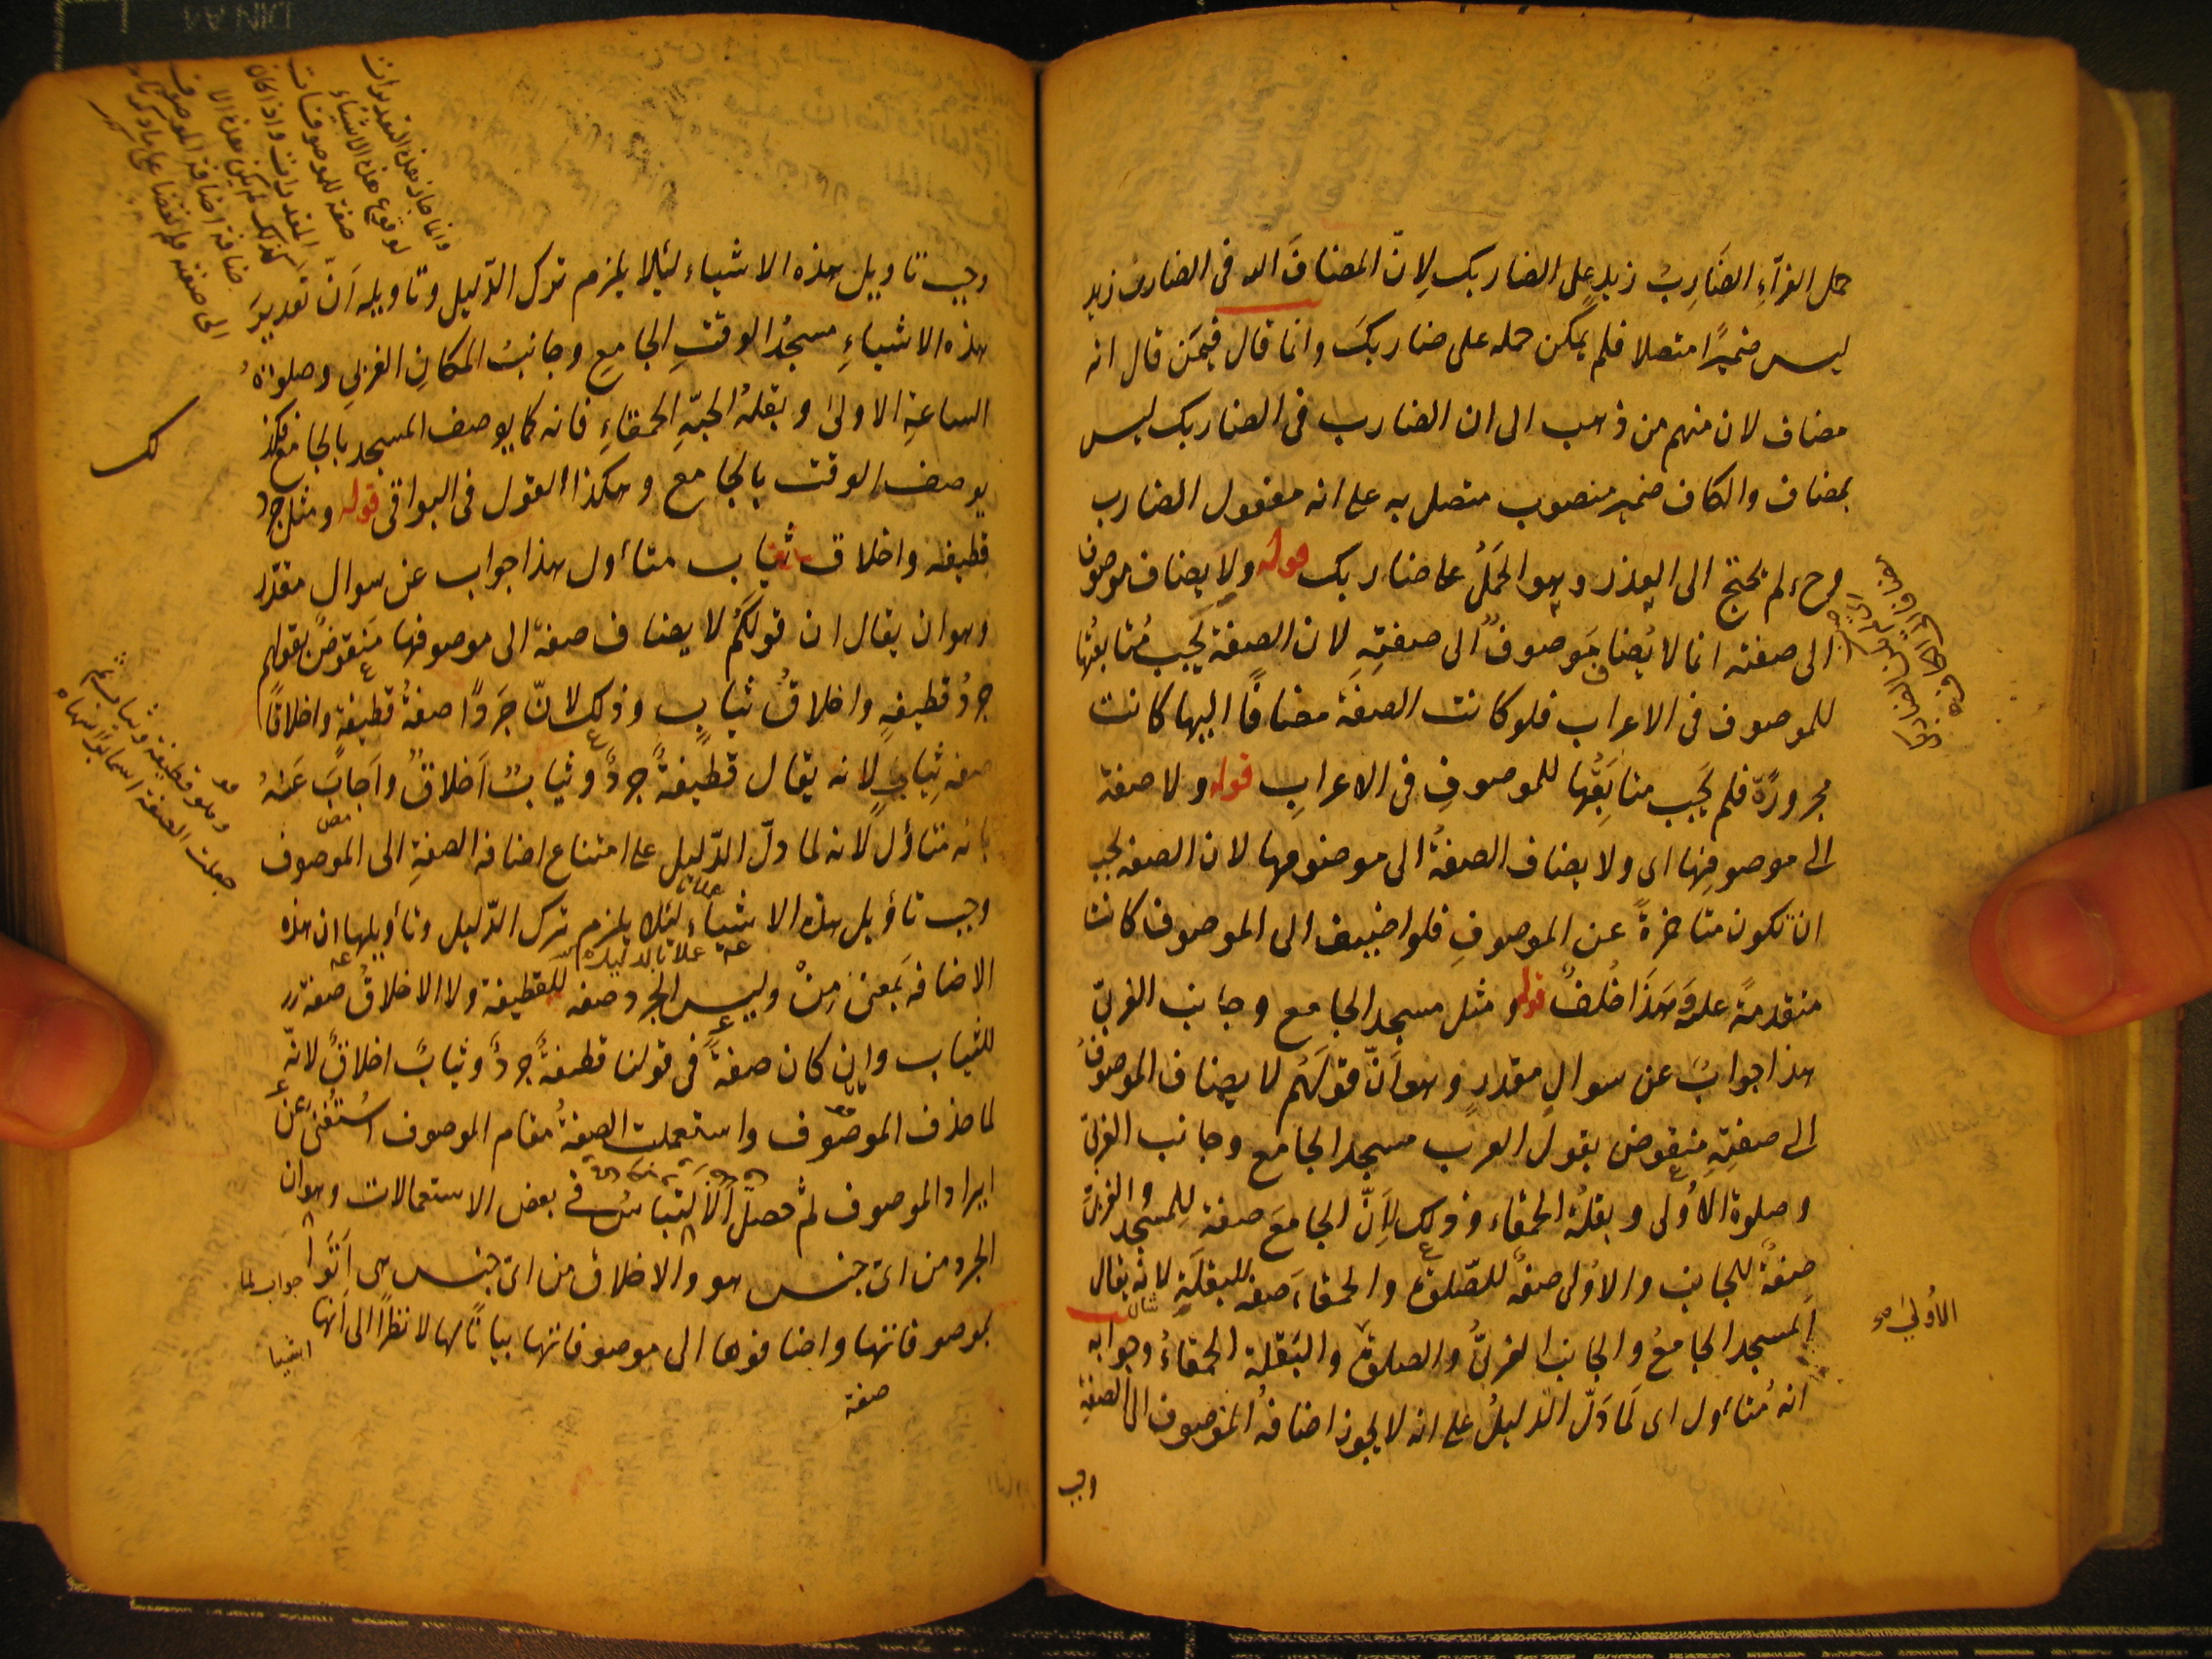 حمل الفرّاءِ الضَارِبُ زيدٍ على الضاربك لِانّ المضافَ اليه فى الضارب زيد
ليس ضميرًا متصلا فلم يمكن حمله على ضاربكَ وانما قال فيمَن قال انه
مضاف لان منهم من ذهب الى ان الضارب فى الضاربك ليس
بمضاف والكاف ضمير منصوب متصل به على انه مفعول الضارب
وح لم يحتج الى العذر وهو الحَملُ على ضاربك قوله ولا يضاف موصوف
الى صفته انما لا يُضاف مَوصوفٌ الى صفتِهِ لان الصفة يَجب مُتابعُتها
للموصوف فى الاعراب فلو كانت الصفة مضافًا اليها كانت
مجرورَةً فلم يَجب متابَعُتها للموصوفِ فى الاعرابِ قوله ولا صفة
الى موصوفِها اى ولا يضاف الصفةُ الى موصوفها لان الصفة يجب
ان تكون متاخرةً عن الموصوفِ فلو اضيف الى الموصوف كانت
متقدمةً عليه وَهَذَا خُلفٌ قوله ومثل مسجد الجامع وجانب الغربىّ
هذا جوابٌ عن سوالٍ مقدرٍ وهو اَنّ قولَهُم لا يضاف الموصوفُ
الى صفتِهِ منقوض بقول العرب مسجد الجامع وجانب الغربىّ
وصلوة الاُولَى وبقلة الحمقاء وذلك لِاَنّ الجامعَ صفة لِلمسْجد والغربىّ
صِفةٌ للجانب والاُولى صفةٌ للصّلوة والحمقاءَ صفة للبقلَةِ لانه يقال
المسجد الجامعُ والجانب الغربىُّ والصلوة والبَقلة الحمقاءُ وجوابه
الاُولىٰ صح
انه مُتاَوّل اى لَمّا دَلّ الدليلُ على انه لا يجوز اضافةُ الموصوف الى الصفةِ
وجب
وجب تاويل هذه الاشياء لئلا يلزم ترك الدّليل وتاويله اَنّ تقديرَ
هذه الاشياءِ مسجدُ الوقتِ الجامعِ وجانبُ المكانِ الغربىِ وصلوةُ
الساعةِ الاولىٰ وبقلةُ الحبّةِ الحمقاءِ فانه كما يوصف المسجد بالجامع فكذا
يوصف الوقت بالجامع وهكذا القول فى البواقى قوله ومثل جرد
قطيفة واخلاق ثياب متاَول هذا جواب عن سوال مقدّر
وهو ان يقال ان قولكُم لا يضاف صفة الى موصوفها مَنقوضٌ بقولهم
جردُ قطيفةٍ واخلاقُ ثيابٍ وذلك لانّ جَردًا صفةُ قطيفةٍ واخلاقًا
صفة ثِيابٍ لانه يقال قطيفةٌ جردٌ وثيابٌ اَخلاقٌ واَجابَ عَنهُ
بانه متاَوّل لانه لما دلّ الدّليل على امتناع اضافة الصفةِ الى الموصوف
وجب تاَويل هذه الاشياء لئلا يلزم ترك الدّليل وتاَويلها ان هذه
الاضافة بمَعنىٰ مِنْ وليس الجرد صفة للقطيفة ولا الاخلاقُ صفة
للثياب وان كان صفةً فى قولنا قطيفةٌ جردٌ وثيابٌ اخلاقٌ لانّه
لما حذف الموصوف واستعملت الصفةُ مقام الموصوف اُستُغنى عن
ايراد الموصوف ثم حصل الالتباسُ فى بعض الاستعمالات وهو ان
الجرد من اىّ جنس هو والاخلاق من اىّ جنس هى اَتَوا
جواب لما
بموصوفاتها واضافوها الى موصوفاتها بيانًا لها لا نظرًا الى انها
صفة
وانما جاز هذه التقديرات
لوقوع هذه الاشياء
صفة للموصوفات
المقدرات واذا كان
كذلك لم يكن هذه الا
ضافة اضافة الموصوف
الى صفته فلم نقضا على ما ذكر
جعلت الصفة